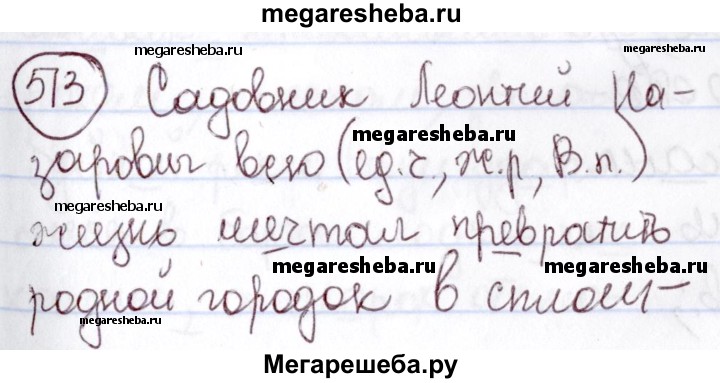 megaresheba.ru
megaresheba.ru
megaresheba.ru
573 Садовник Леонтий На-
megaresheba.ru
зарович всю (ед.ч, ж.р, В.п.)
megaresheba.ru
жизнь мечтал превратить
megaresheba.ru
megaresheba.ru
родной городок в сплош-
megaresheba.ru
Мегарешеба.ру